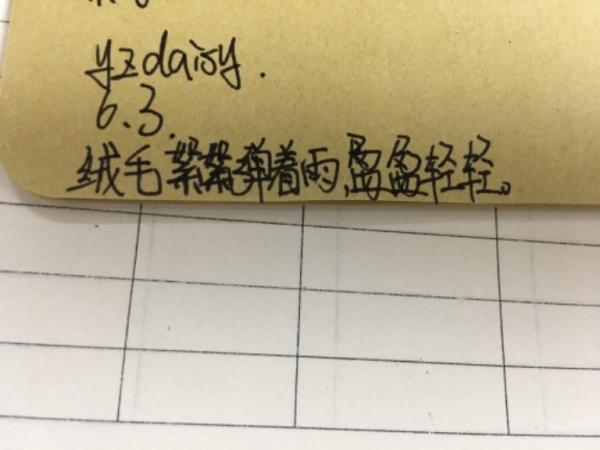 yzdaisy.
6.3.
绒毛絮絮弹着雨,雷雷轻轻。